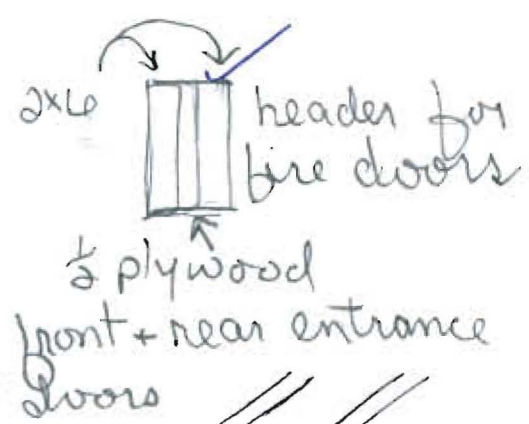 2x6
header for
fire doors
1/2 plywood
front + rear entrance
doors